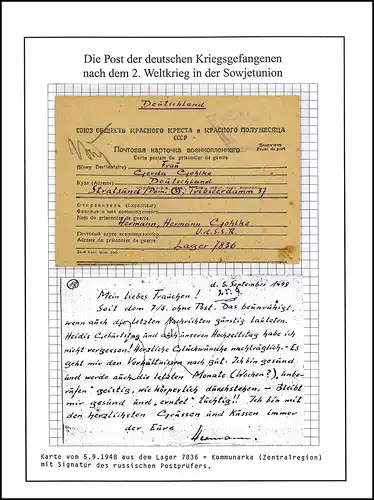 Die Post der deutschen Kriegsgefangenen
nach dem 2. Weltkrieg in der Sowjetunion
Deutschland
СОЮЗ ОБЩЕСТВ КРАСНОГО КРЕСТА и КРАСНОГО ПОЛУМЕСЯЦА
СССР
Почтовая карточка военнопленного
Carte postale du prisonnier de guerre
Бесплатно
Franc de port
Кому (Destinataire) Frau
Gerda Gohlke
Куда (Adresse) Deutschland
Stralsund/Pom. Tribseerdamm 37
Отправитель (Expéditeur)
Фамилия и имя военнопленного
Nom du prisonnier de guerre
Hermann, Hermann Gohlke
Почтовый адрес военнопленного U.d.S.S.R.
Adresse du prisonnier de guerre
Lager 7836
d. 5. September 1948
Mein liebes Frauchen!
Seit dem 7/8. ohne Post. Das beunruhigt,
wenn auch die letzten Nachrichten günstig lauteten.
Heidis Geburtstag und auch unseren Hochzeitstag habe ich
nicht vergessen! Herzliche Glückwünsche nachträglich. – Es
geht mir den Verhältnissen nach gut. Ich bin gesund
und werde auch die letzten Monate (Wochen?),
geistig, wie körperlich durchstehen. – Bleibt
mir gesund und tüchtig!! Ich bin mit
den herzlichsten Grüssen und Küssen immer
der Eure
Hermann.
Karte vom 5.9.1948 aus dem Lager 7836 = Kommunarka (Zentralregion)
mit Signatur des russischen Postprüfers.